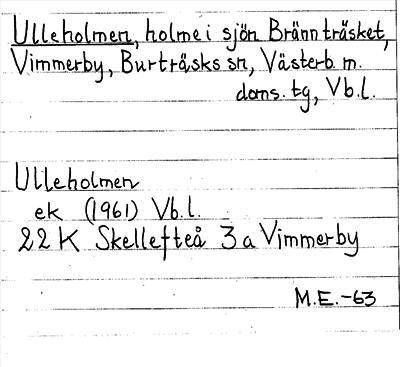 Ulleholmen, holme i sjön Brännträsket,
Vimmerby, Burträsks sn, Västerb. m.
doms. tg, Vb.l.
Ulleholmen
ek (1961) Vb.l.
22K Skellefteå 3a Vimmerby
M.E.-63